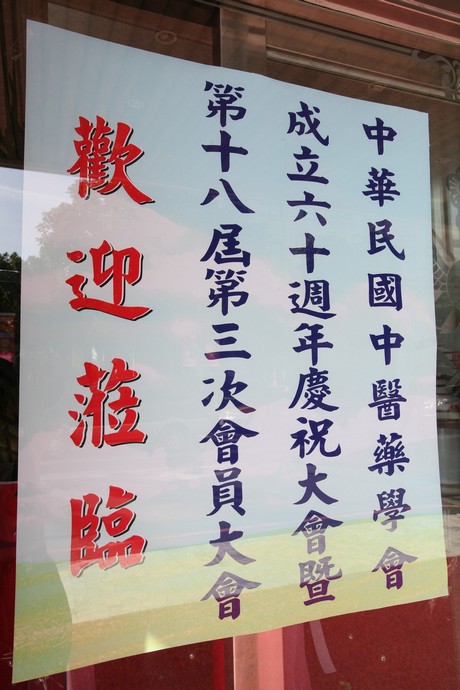 中華民國中醫藥學會
成立六十週年慶祝大會暨
第十八屆第三次會員大會
歡迎蒞臨